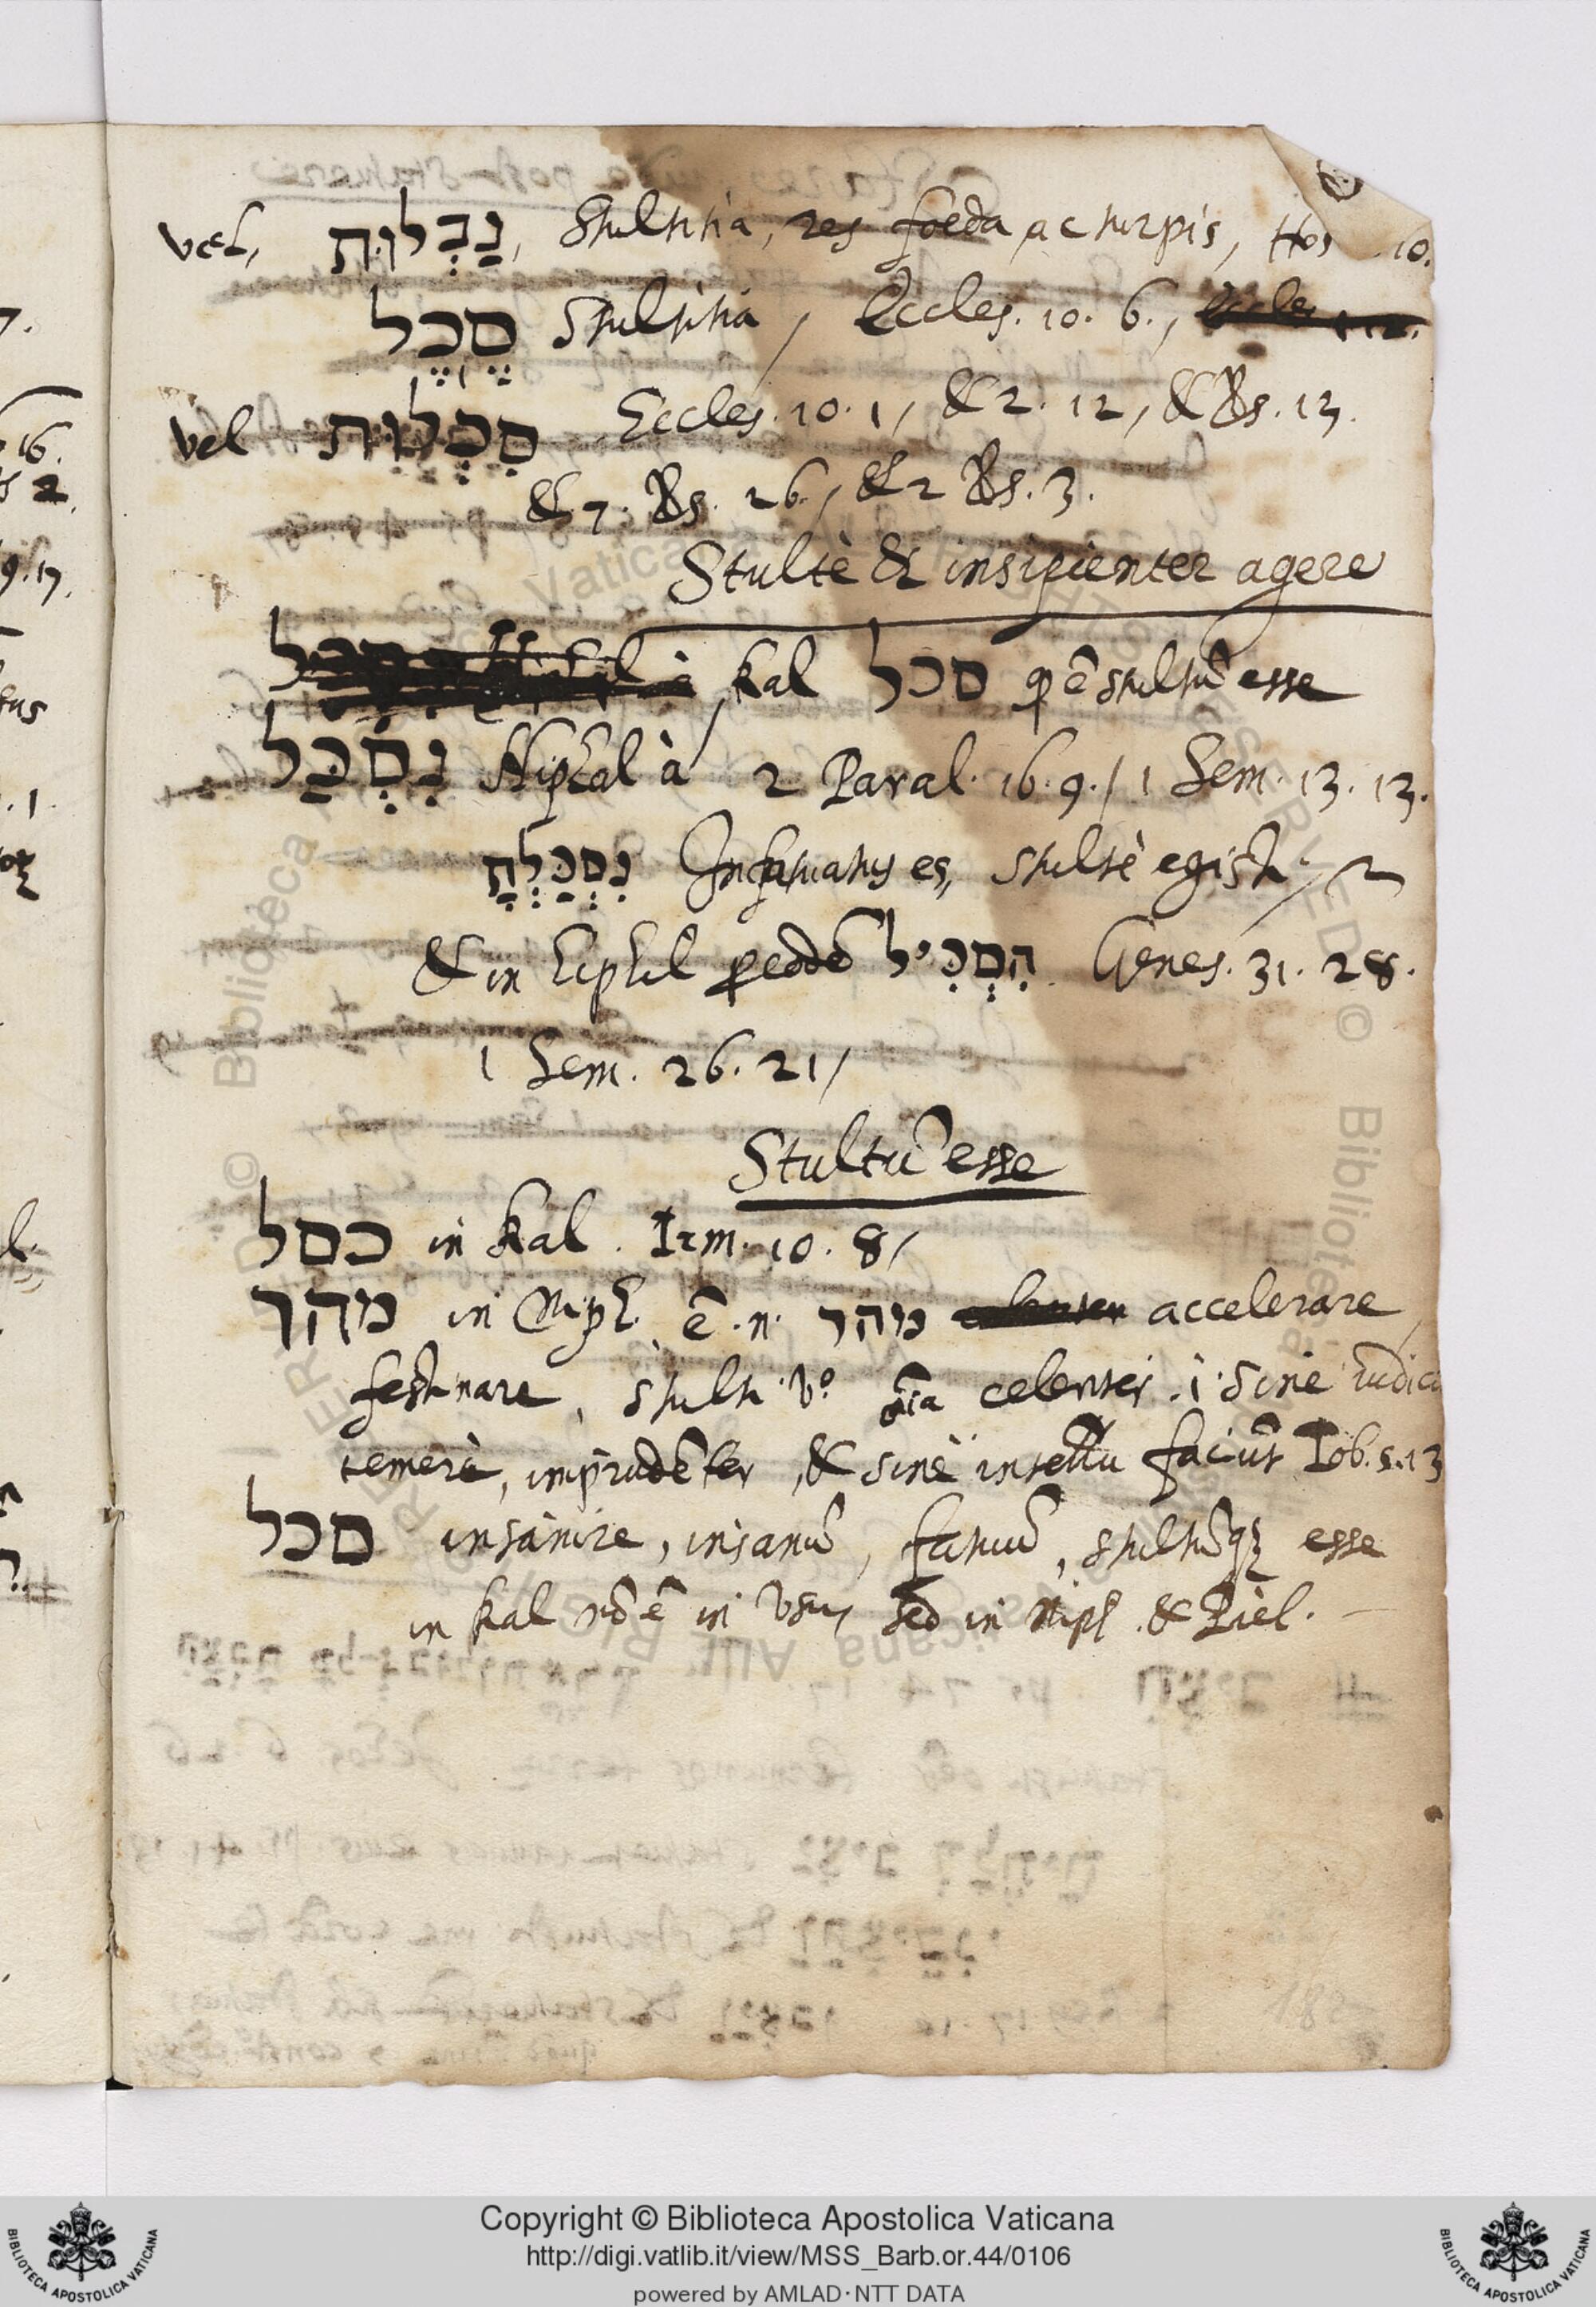 vel, נַבְלוּת, Stultitia, res foeda ac turpis, Hos 10.
סֶכֶל Stultitia, Eccles. 10. 6.,
vel סִכְלוּת Eccles. 10. 1, & 2. 12, & Vs. 13.
& 7. Vs. 26., & 2 Vs. 3.
Stultè & insipienter agere
kal סכל q̃ ẽ stultũ esse
נִסְכַּל Niphal à 2 Paral. 16. 9., 1 Sem. 13. 13.
נִסְכַּלְתָּ Infatuatus es, stultè egisti,
& in hiphil הִסְכִּיל Genes. 31. 28.
1 Sem. 26. 21,
Stultũ esse
כסל in kal. Irm. 10. 8,
מהר in Niph. ẽ. n. מהר accelerare
festinare, stulti v.º õia celeriter .i. sine iudici
temerè, imprudẽter, & sinè intellu faciũt Iob. 5. 13
סכַל insanire, insanũ, fatuũ, stultũq; esse
in kal nõ ẽ in usu, sed in Niph. & Piel.
Copyright © Biblioteca Apostolica Vaticana
http://digi.vatlib.it/view/MSS_Barb.or.44/0106
powered by AMLAD·NTT DATA
BIBLIOTECA APOSTOLICA VATICANA
BIBLIOTECA APOSTOLICA VATICANA